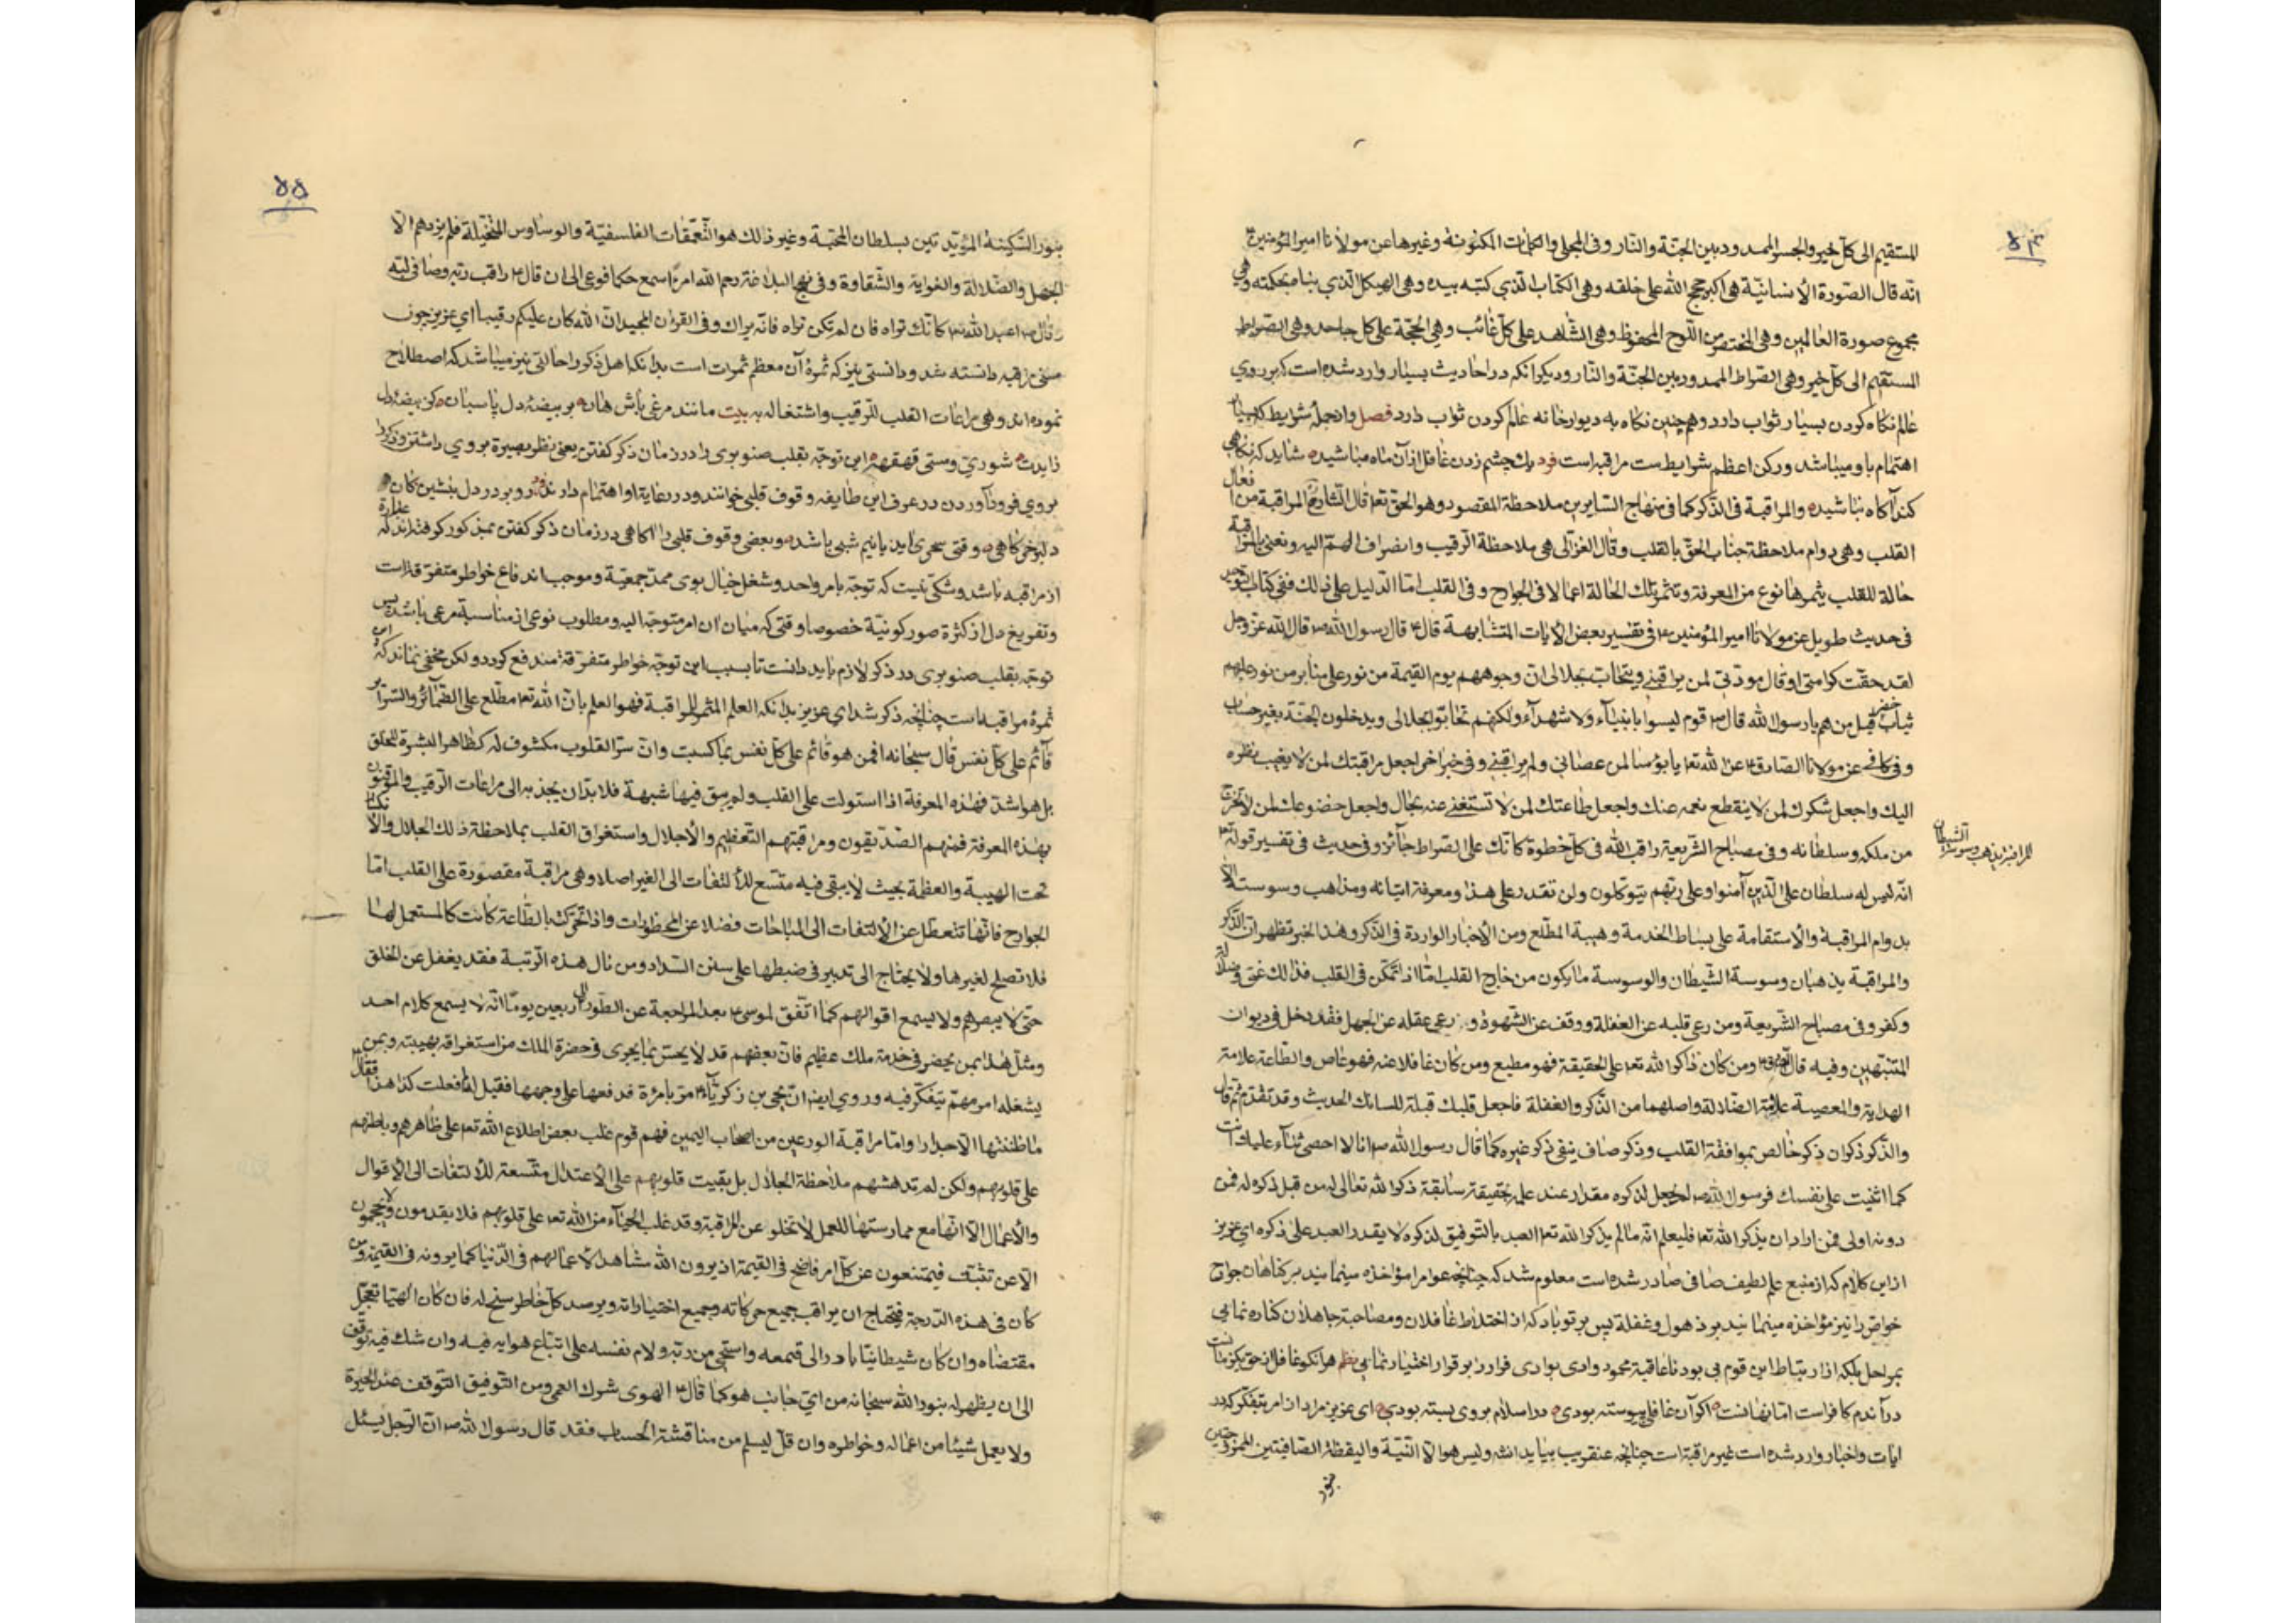 ۵۴
المستقیم الی کل خیر والجسر الممدود بین الجنّة والنّار وفی المجلی والکلمات المکنونة وغیرها عن مولانا امیر المؤمنین ع
انّه قال الصّورة الأنسانیّة هی اکبر حجج الله علی خلقه وهی الکتاب الّذی کتبه بیده وهی الهیکل الّذی بناه بحکمته وهی
مجموع صورة العالمین وهی المختصر من اللّوح المحفوظ وهی الشّاهد علی کلّ غائب وهی الحجّة علی کلّ جاحد وهی الصّراط
المستقیم الی کلّ خیر وهی الصّراط الممدود بین الجنّة والنّار ودیکر آنکه در احادیث بسیار وارد شده است که بر روی
عالم نکاه کردن بسیار ثواب دارد وهم چنین نکاه به دیوار خانه عالم کردن ثواب دارد فصل وازجملۀ شرایط که بسیار
اهتمام باو میباشد ورکن اعظم شرایط است مراقبه است فرد یك چشم زدن غافل از آن ماه مباشید شاید که نکاهی
کند آکاه نباشید والمراقبة فی الذّکر کما فی منهاج السّایرین ملاحظة المقصود وهو الحق تع قال الشّارح المراقبة من افعال
القلب وهی دوام ملاحظة جناب الحقّ بالقلب وقال الغزّالی هی ملاحظة الرّقیب وانصراف الهمّ الیه ونعنی بالمراقبة
حالة للقلب یثمرها نوع من المعرفة وتثمر تلك الحالة اعمالا فی الجوارح وفی القلب امّا الدّلیل علی ذلك ففی کتاب توحید
فی حدیث طویل عن مولانا امیر المؤمنین ع فی تفسیر بعض الآیات المتشابهة قال ع قال رسول الله ص قال الله عزّ وجل
لقد حقّت کرامتی او قال مودّتی لمن یراقبنی ویتحابّ بجلالی انّ وجوههم یوم القیمة من نور علی منابر من نور علیهم
ثیاب خضر قیل من هم یا رسول الله قال ص قوم لیسوا بانبیآء ولا شهدآء ولکنهم تحابّوا بجلالی ویدخلون الجنّة بغیر حساب
وفی کافی عن مولانا الصّادق ع عن الله تع یا بؤسا لمن عصانی ولم یراقبنی وفی خبر اخر اجعل مراقبتك لمن لا یغیب نظره
الیك واجعل شکرك لمن لا ینقطع نعمه عنك واجعل طاعتك لمن لا تستغنی عنه بحال واجعل خضوعك لمن لا تخرج
من ملکه وسلطانه وفی مصباح الشّریعة راقب الله فی کلّ خطوة کانّك علی الصّراط جآئز وفی حدیث فی تفسیر قوله تع
انّه لیس له سلطان علی الّذین آمنوا وعلی ربّهم یتوکلون ولن تقدر علی هذا ومعرفة اتیانه ومذاهب وسوسته الّا
بدوام المراقبة والأستقامة علی بساط الخدمة وهیبة المطّلع ومن الأخبار الواردة فی الذّکر وهذا الخبر تظهر ان الذّکر
والمراقبة یذهبان وسوسة الشّیطان والوسوسة ما یکون من خارج القلب امّا اذا تمّکن فی القلب فذالك غیّ وضلالة
وکفر وفی مصباح الشّریعة ومن رعی قلبه عن الغفلة ووقف عن الشهوة و رعی عقله عن الجهل فقد دخل فی دیوان
المتنبّهین وفیه قال الصّادق ع ومن کان ذاکرا لله تع علی الحقیقة فهو مطیع ومن کان غافلا عنه فهو عاص والطّاعة علامة
الهدایة والمعصیة علامة الضّلالة واصلهما من الذّکر والغفلة فاجعل قلبك قبلة للسانك الحدیث وقد تقدّم ثم قال
والذّکر ذکران ذکر خالص بموافقة القلب وذکر صاف ینفی ذکر غیره کما قال رسول الله ص انا لا احصی ثنآء علیك انت
کما اثنیت علی نفسك فرسول الله ص لم یجعل لذکره مقدار عند علمه بحقیقة سابقة ذکر الله تعالی له من قبل ذکره له فمن
دونه اولی فمن اراد ان یذکر الله تع فلیعلم انّه ما لم یذکر الله تع العبد بالتّوفیق لذکره لا یقدر العبد علی ذکره ای عزیز
از این کلام که از منبع علم لطیف صافی صادر شده است معلوم شد که چنانچه عوام را مؤاخذه مینمایند بر کناهان جوارح
خواصّ را نیز مؤاخذه مینمایند بر ذهول وغفلة پس بر تو باد که از اختلاط غافلان ومصاحبة جاهلان کناره نمایی
بمراحل بلکه از ارتباط این قوم بی بود ناعاقبة محمود وادی بوادی فرار را بر قرار اختیار نمایی نظم هر آنکو غافل از حق یکزمانست
در آندم کافراست امّا نهانست اکر آن غافلی پیوسته بودی در اسلام بروی بسته بودی ای عزیز مراد از امر بتفکّر که در
ایات واخبار وارد شده است غیر مراقبة است چنانچه عنقریب بیاید انشه ولیس هو الّا النّیّة والیقظة الصّافیتین الممزوجتین
بنور
المراقبة یذهب وسوسة الشیطان
۵۵
بنور السّکینة المؤیّدتین بسلطان المحبّة وغیر ذالك هو التّعمّقات الفلسفیّة والوساوس المتخیّلة فلم یزدهم الّا
الجهل والضّلالة والغوایة والشّقاوة وفی نهج البلاغة رحم الله امرءا سمع حکما فوعی الی ان قال ع راقب ربّه وصافی لبّه
وقال ص اعبد الله کانّك تراه فان لم تکن تراه فانّه یراك وفی القرءان المجید انّ الله کان علیکم رقیبا ای عزیز چون
معنی مراقبه دانسته شد ودانستی نیز که ثمرۀ آن معظم ثمرات است بدانکه اهل ذکر را حالتی نیز میباشد که اصطلاح
نموده اند وهی مراعات القلب للرّقیب واشتغاله به بیت مانند مرغی باش هان بر بیضۀ دل پاسبان کز بیضۀ دل
زایدت شوری ومستی قهقهه این توجّه بقلب صنوبری را در زمان ذکر کفتن یعنی نظر بصیرة بروی داشتن وذکر را
بروی فرود آوردن در عرف این طایفه وقوف قلبی خوانند ودر رعایة او اهتمام دارند فرد رو بر در دل بنشین کان
دلبر خرکاهی وقتی سحری آید یا نیم شبی باشد وبعضی وقوف قلبی را آکاهی در زمان ذکر کفتن بمذکور کرفته اند که عبارة
از مراقبه باشد وشکّی نیست که توجّه بامر واحد وشغل خیال بوی ممدّ جمعیّة وموجب اندفاع خواطر متفرّقه است
وتفریغ دل از کثرة صور کونیّة خصوصا وقتی که میان ان امر متوجّه الیه ومطلوب نوعی از مناسبة مرعی باشد پس
توجّه بقلب صنوبری در ذکر لازم باید دانست تا بسبب این توجّه خواطر متفرّقة مندفع کردد ولکن مخفی نماند که این
ثمرۀ مراقبه است چنانچه ذکر شد ای عزیز بدانکه العلم المثمر للمراقبة فهو العلم بانّ الله تع مطّلع علی الضّمائر والسّرآئر
قآئم علی کلّ نفس قال سبحانه افمن هو قائم علی کلّ نفس بما کسبت وانّ سرّ القلوب مکشوف له کظاهر البشرة للخلق
بل هو اشدّ فهذه المعرفة اذا استولت علی القلب ولم یبق فیها شبهة فلا بدّ ان یجذبه الی مراعات الرّقیب والموقنون
بهذه المعرفة فمنهم الصّدّیقون ومراقبتهم التّعظیم والأجلال واستغراق القلب بملاحظة ذلك الجلال والأنکسار
تحت الهیبة والعظمة بحیث لا یبقی فیه متّسع للألتفات الی الغیر اصلا وهی مراقبة مقصورة علی القلب امّا
الجوارح فانّها تتعطّل عن الألتفات الی المباحات فضلا عن المحظورات واذا تحرّکت بالطّاعة کانت کالمستعمل لها
فلا تصلح لغیرها ولا یحتاج الی تدبیر فی ضبطها علی سنن السّداد ومن نال هذه الرّتبة فقد یغفل عن الخلق
حتّی لا یبصرهم ولا یسمع اقوالهم کما اتّفق لموسی ع بعد المراجعة عن الطّور الی اربعین یوما انّه لا یسمع کلام احد
ومثل هذا بمن یحضر فی خدمة ملك عظیم فانّ بعضهم قد لا یحسّ بما یجری فی حضرة الملك من استغراقه بهیبته وبمن
یشغله امر مهمّ یتفکّر فیه وروی ایضا انّ یحیی بن زکریّآء ع مرّ بامرة فدفعها علی وجهها فقیل له لم فعلت کذا هذا فقال
ما ظننتها الّا جدارا وامّا مراقبة الورعین من اصحاب الیمین فهم قوم غلب بعض اطلاع الله تع علی ظاهرهم وباطنهم
علی قلوبهم ولکن لم تدهشهم ملاحظة الجلال بل بقیت قلوبهم علی الأعتدال متّسعة للألتفات الی الأقوال
والأعمال الّا انّها مع ممارستها للعمل لا تخلو عن المراقبة وقد غلب الحیآء من الله تع علی قلوبهم فلا یقدمون ولا یحجمون
الّا عن تثبّت فیمتنعون عن کلّ امر فاضح فی القیمة اذ یرون الله مشاهدا لأعمالهم فی الدّنیا کما یرونه فی القیمة ومن
کان فی هذه الدّرجة فیحتاج ان یراقب جمیع حرکاته وجمیع اختیاراته ویرصد کلّ خاطر سنح له فان کان الهیّا تعجّل
مقتضاه وان کان شیطانیّا بادر الی قمعه واستحی من ربّه ولام نفسه علی اتباع هوایه فیه وان شك فیه توقّف
الی ان یظهر له بنور الله سبحانه من ایّ جانب هو کما قال ع الهوی شرك العمی ومن التّوفیق التّوقف عند الحیرة
ولا یعمل شیئا من اعماله وخواطره وان قلّ لیسلم من مناقشة الحساب فقد قال رسول الله ص انّ الرّجل یسئل